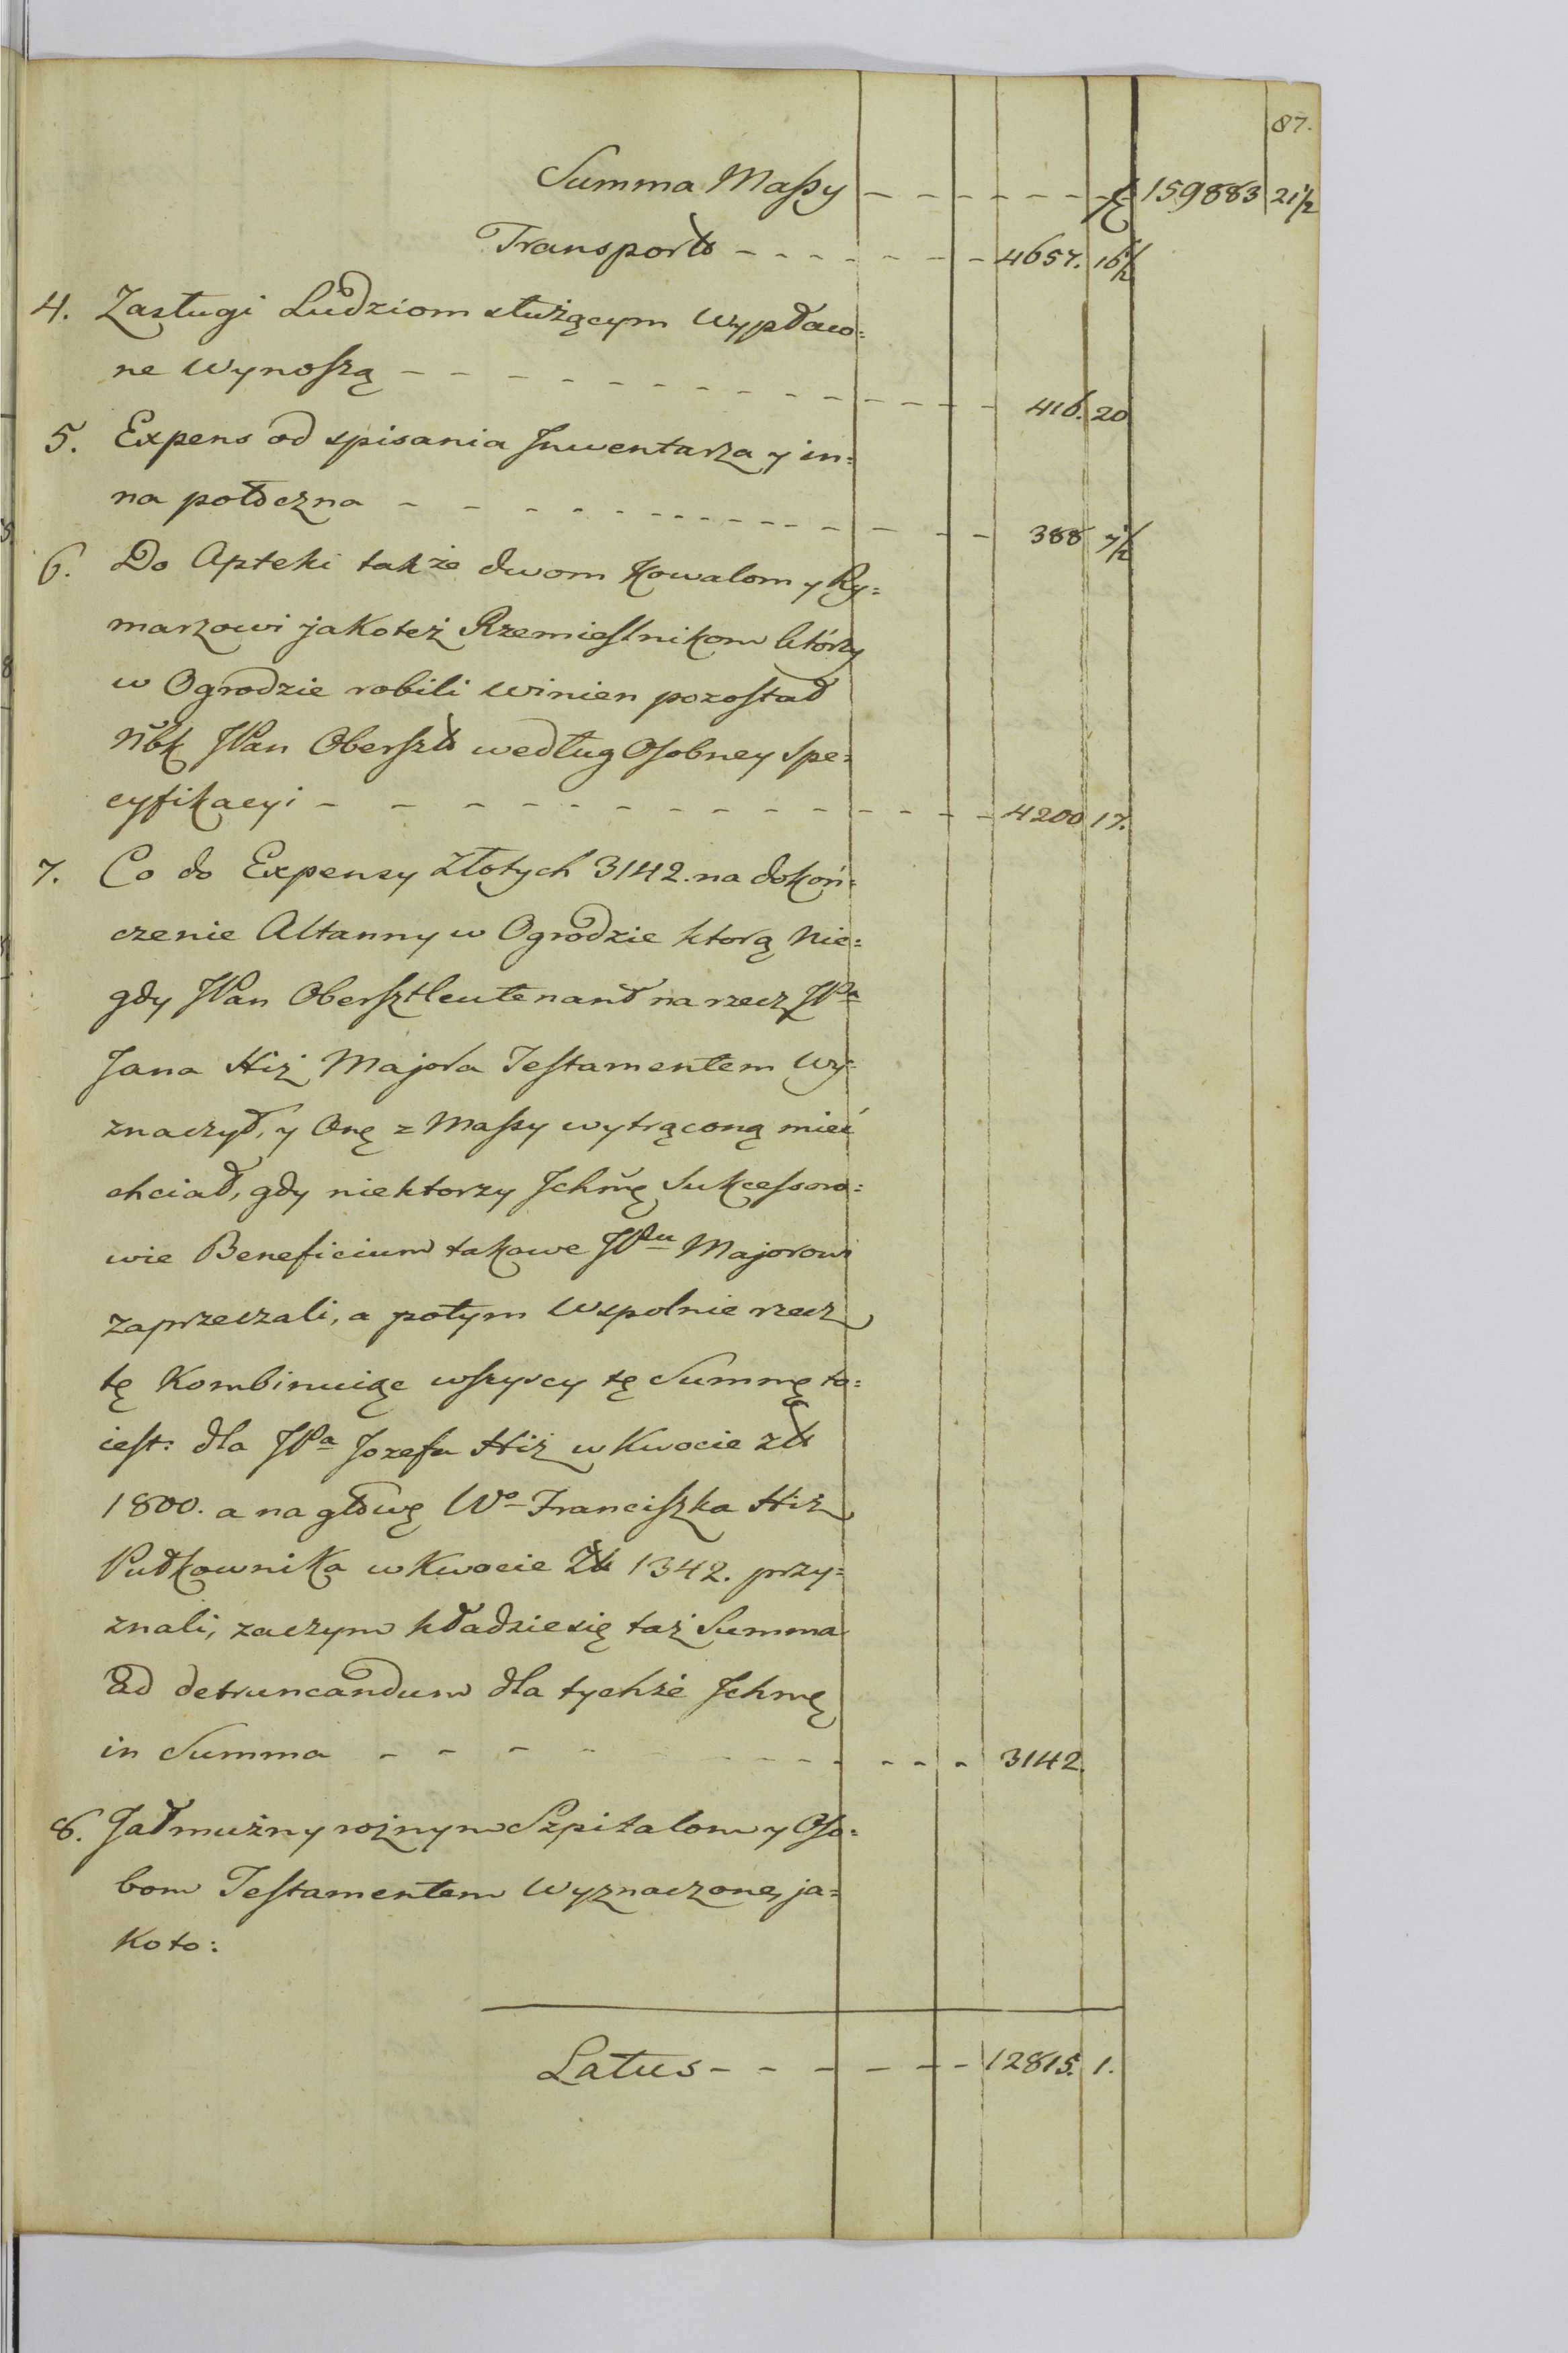 87.
Summa Massy - - - - - - - zł 159883 21 1/2
Transport - - - - - - - 4657. 16 1/2
4. Zasługi Ludziom służącym wypłaco=
ne wynoszą - - - - - - - - - - - - 416. 20
5. Expens od spisania Jnwentarza y in=
na potoczna - - - - - - - - - - - - 388 7 1/2
6. Do Apteki także dwom Kowalom y Ry=
marzowi jakoteż Rzemieslnikom którzy
w Ogrodzie robili winien pozostał
Nbk JPan Oberszt według Osobney spe=
cyfikacyi - - - - - - - - - - - - 4200 17.
7. Co do Expensy Złotych 3142. na dokoń=
czenie Altanny w Ogrodzie ktorą Nie=
gdy JPan Obersztleutenant na rzecz JPa
Jana Hiż Majora Testamentem wy=
znaczył, y Onę z Massy wytrąconą mieć
chciał, gdy niektorzy Jchmę Sukcessoro=
wie Beneficium takowe JPnu Majorowi
zaprzeczali, a potym wspolnie rzecz
tę Kombinuiąc wszyscy tę Summę to=
iest: dla JPa Jozefa Hiż w Kwocie zł
1800. a na głowę Wo Franciszka Hiż
Pułkownika w Kwocie Zł 1342. przy=
znali, zaczym kładzie się taż Summa
ad detruncandum dla tychże Jchmę
in Summa - - - - - - - - - - - - 3142.
8. Jałmużny rożnym Szpitalom y Oso=
bom Testamentem wyznaczone, ja=
koto:
Latus - - - - - - 12815. 1.